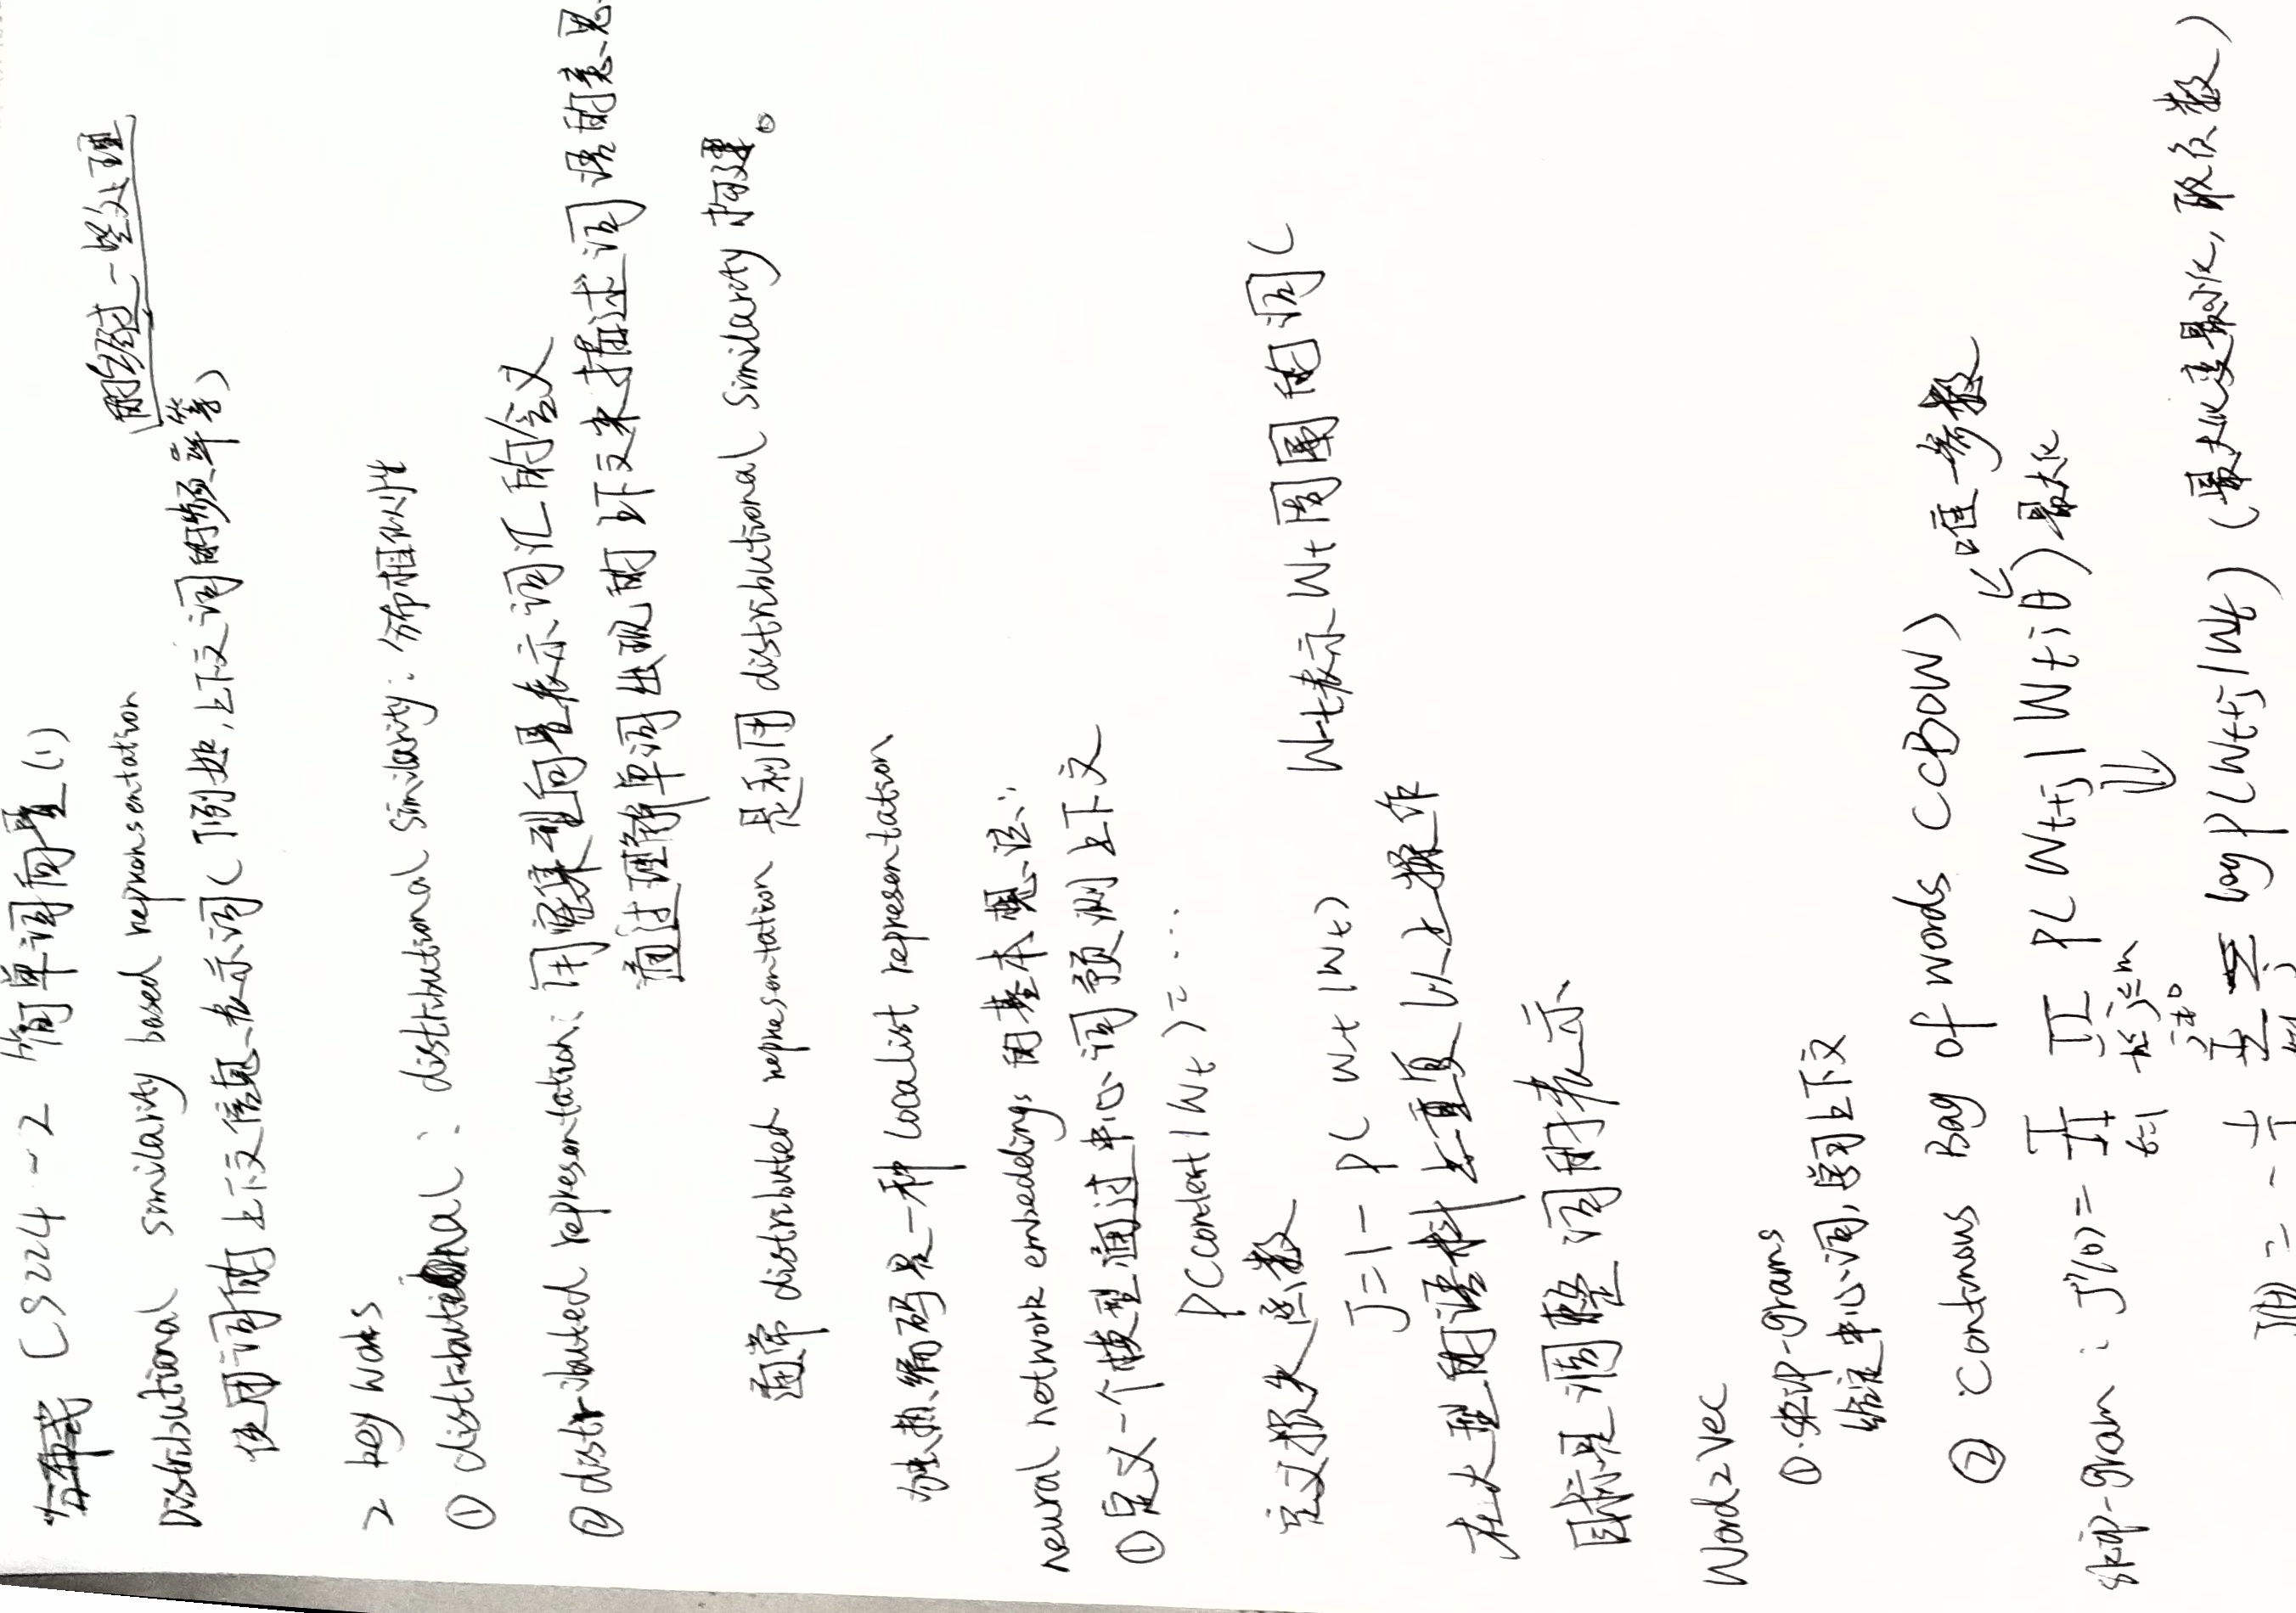 CS224-2 简单词向量(1)
的经过一些处理
Distributional similarity based reprensentation
使用词的上下文信息表示词(例如,上下文词的频率等)
2 key words
① distributional: distributional similarity: 分布相似性
② distributed representation: 用密集型向量表示词汇的含义
通过理解单词出现的上下文来描述词语的意思
通常 distributed representation 是利用 distributional similarity 构建。
独热编码是一种 localist representation
neural network embeddings 的基本想法:
①定义一个模型通过中心词预测上下文
P(context|Wt)=...
定义损失函数
J=1- P(W-t|Wt) W-t表示Wt周围的词(
在大型的语料上重复以上操作
目标是调整词的表示
Word2Vec
①.skip-grams
给定中心词,学习上下文
② Continous Bag of words (CBOW)
唯一参数
skip-gram: J'(θ)= ∏ ∏ P(Wt+j|Wt;θ) 最大化
t=1 -m≤j≤m
j≠0
J(θ) = - 1/T ∑ ∑ log P(Wt+j|Wt) (最大化变最小化,取负数)